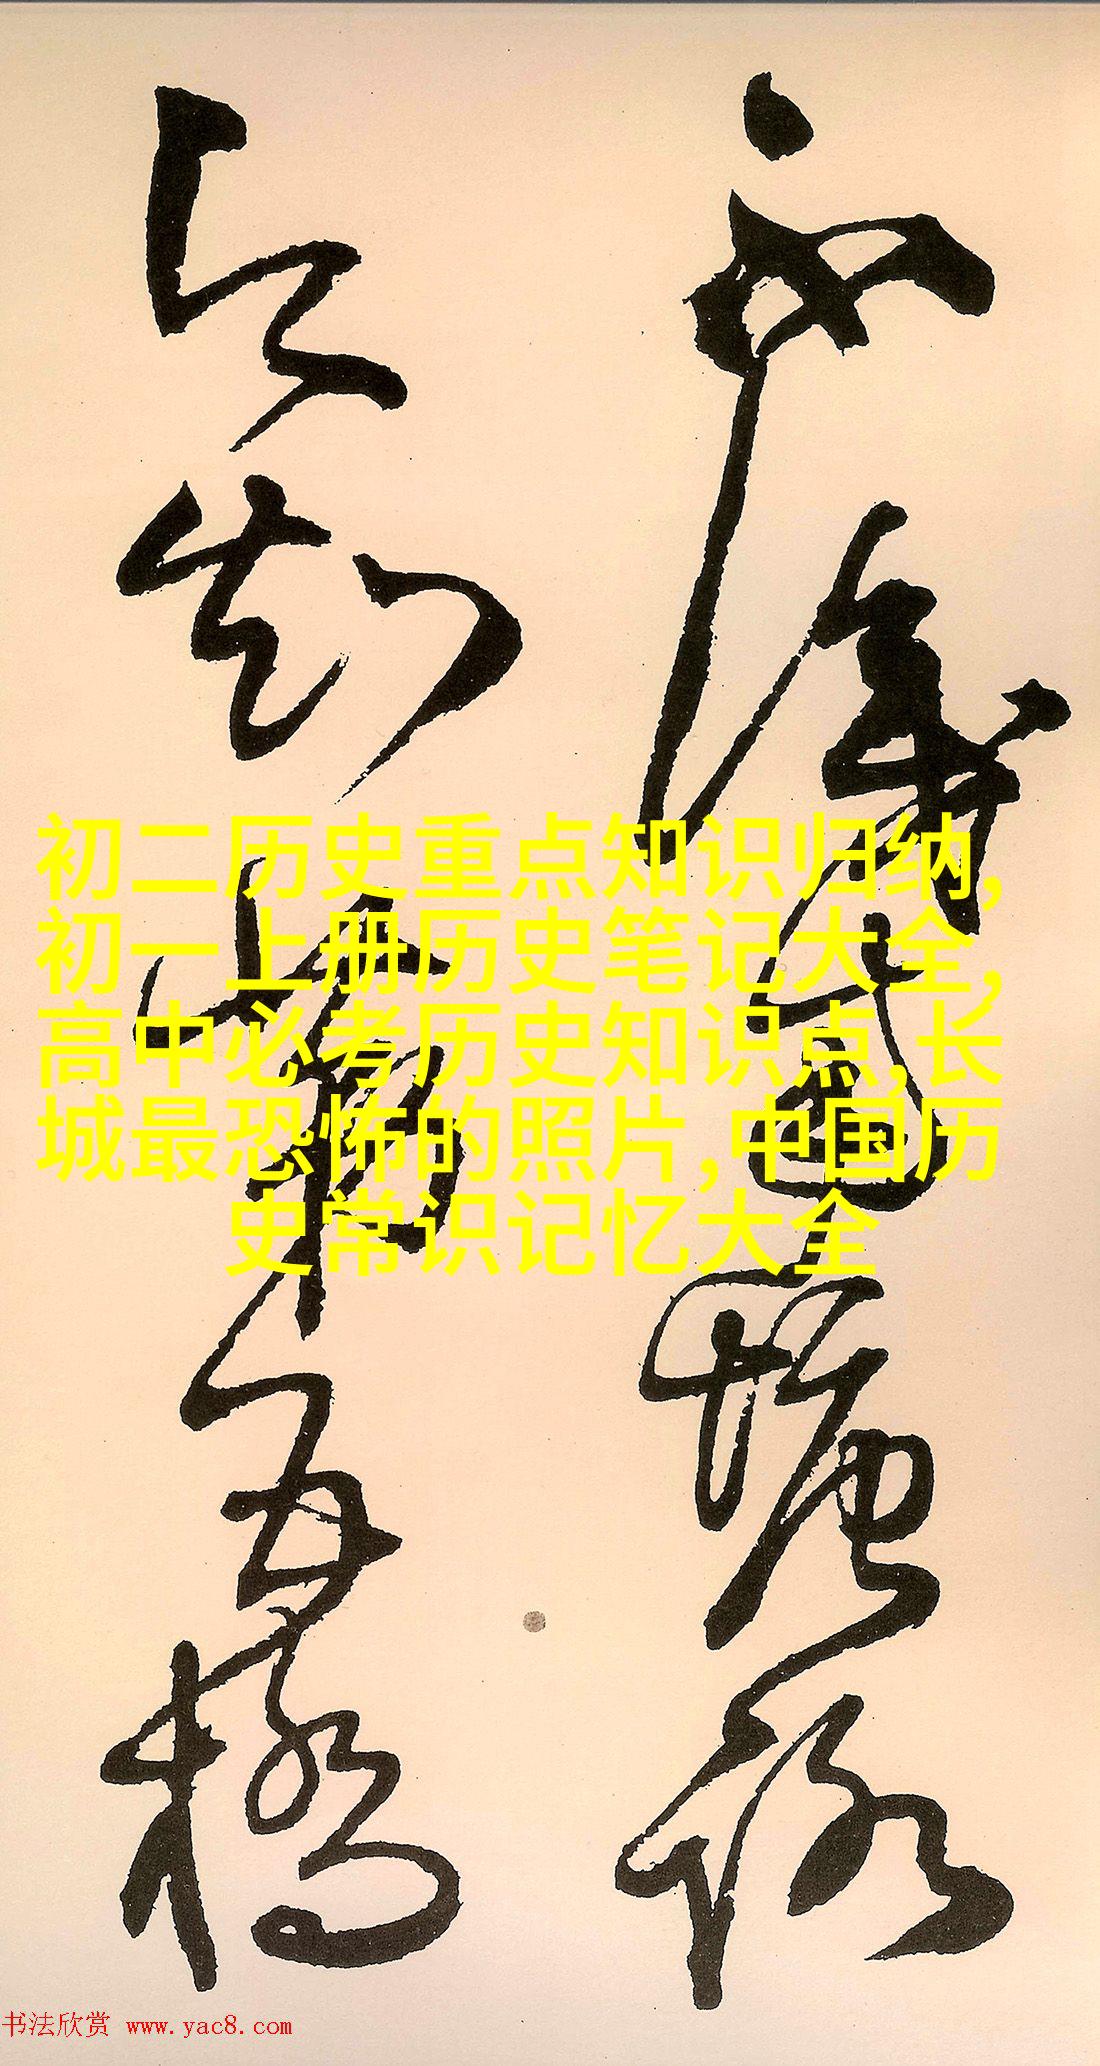 不識南塘路
今知第五橋
初二历史重点知识归纳,
初一上册历史笔记大全,
高中必考历史知识点,长
城最恐怖的照片,中国历
史常识记忆大全
书法欣赏 www.yac8.com